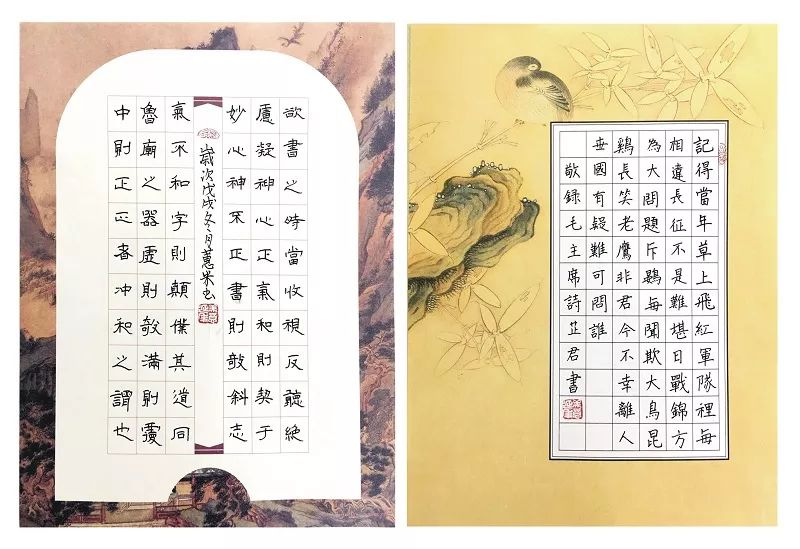 欲書之時當收視反聽絕
慮凝神心正氣和則契于
妙心神不正書則敧斜志
歲次戊戌冬月蕙書
氣不和字則顛僕其道同
魯廟之器虛則敧滿則覆
中則正正者沖和之謂也
記得當年草上飛紅軍隊裡每
相違長征不是難堪日戰錦方
為大問題斥鷃每聞欺大鳥昆
鷄長笑老鷹非君今不幸離人
世國有疑難可問誰
敬録毛主席詩芷君書